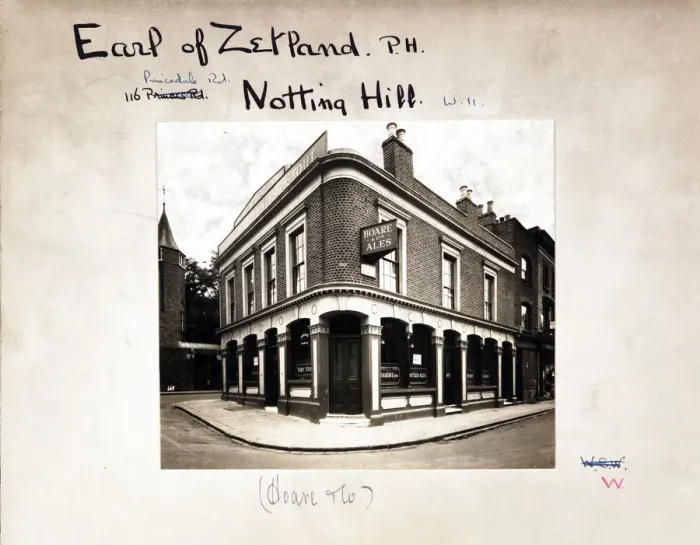 Earl of Zetland. P.H.
Princedale Rd.
116 Princes Rd.
Notting Hill. W.11.
HOARE
& CO'S
ALES
W.S.W.
W.
(Hoare & Co.)